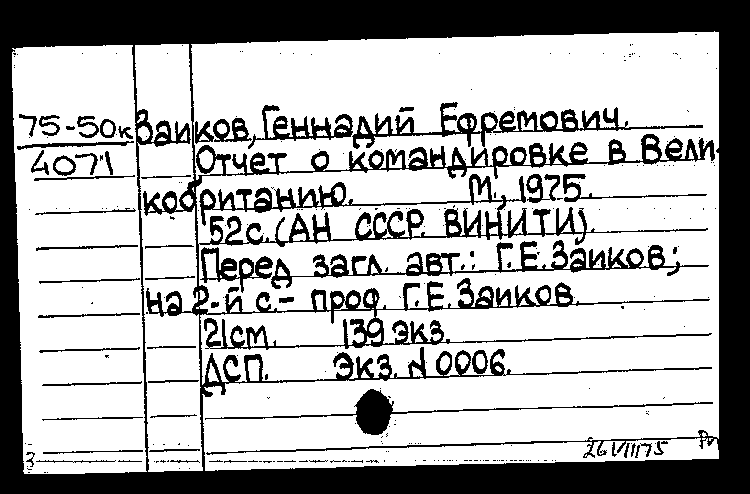 75-50к Заиков, Геннадий Ефремович.
4071 Отчет о командировке в Вели-
кобританию. М., 1975.
52с. (АН СССР. ВИНИТИ).
Перед загл. авт.: Г.Е.Заиков;
на 2-й с.- проф. Г.Е.Заиков.
21см. 139 экз.
ДСП. Экз. N 0006.
26 VIII 75
3